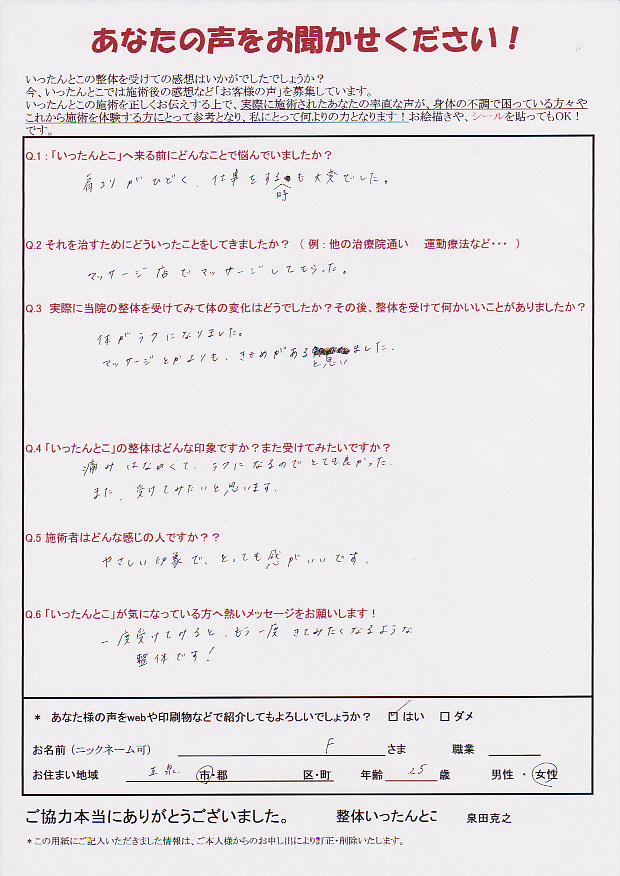 あなたの声をお聞かせください！
いったんとこの整体を受けての感想はいかがでしたでしょうか？
今、いったんとこでは施術後の感想など「お客様の声」を募集しています。
いったんとこの施術を正しくお伝えする上で、実際に施術されたあなたの率直な声が、身体の不調で困っている方々や
これから施術を体験する方にとって参考となり、私にとって何よりの力となります！お絵描きや、シールを貼ってもOK！
です。
Q.1：「いったんとこ」へ来る前にどんなことで悩んでいましたか？
肩コリがひどく、仕事をする時も大変でした。
Q.2 それを治すためにどういったことをしてきましたか？（例：他の治療院通い　運動療法など・・・ ）
マッサージ店でマッサージしてもらった。
Q.3 実際に当院の整体を受けてみて体の変化はどうでしたか？その後、整体を受けて何かいいことがありましたか？
体がラクになりました。
マッサージとかよりも、ききめがあると思いました。
Q.4 「いったんとこ」の整体はどんな印象ですか？また受けてみたいですか？
痛みはなくて、ラクになるのでとても良かった。
また、受けてみたいと思います。
Q.5 施術者はどんな感じの人ですか？？
やさしい印象で、とっても感じがいいです。
Q.6 「いったんとこ」が気になっている方へ熱いメッセージをお願いします！
一度受けてみると、もう一度きてみたくなるような
整体です！
* あなた様の声をwebや印刷物などで紹介してもよろしいでしょうか？ ☑はい □ダメ
お名前（ニックネーム可） F さま 職業
お住まい地域 五泉 市・郡 区・町 年齢 25 歳 男性・女性
ご協力本当にありがとうございました。 整体いったんとこ 泉田克之
*この用紙にご記入いただきました情報は、ご本人様からのお申し出により訂正・削除いたします。